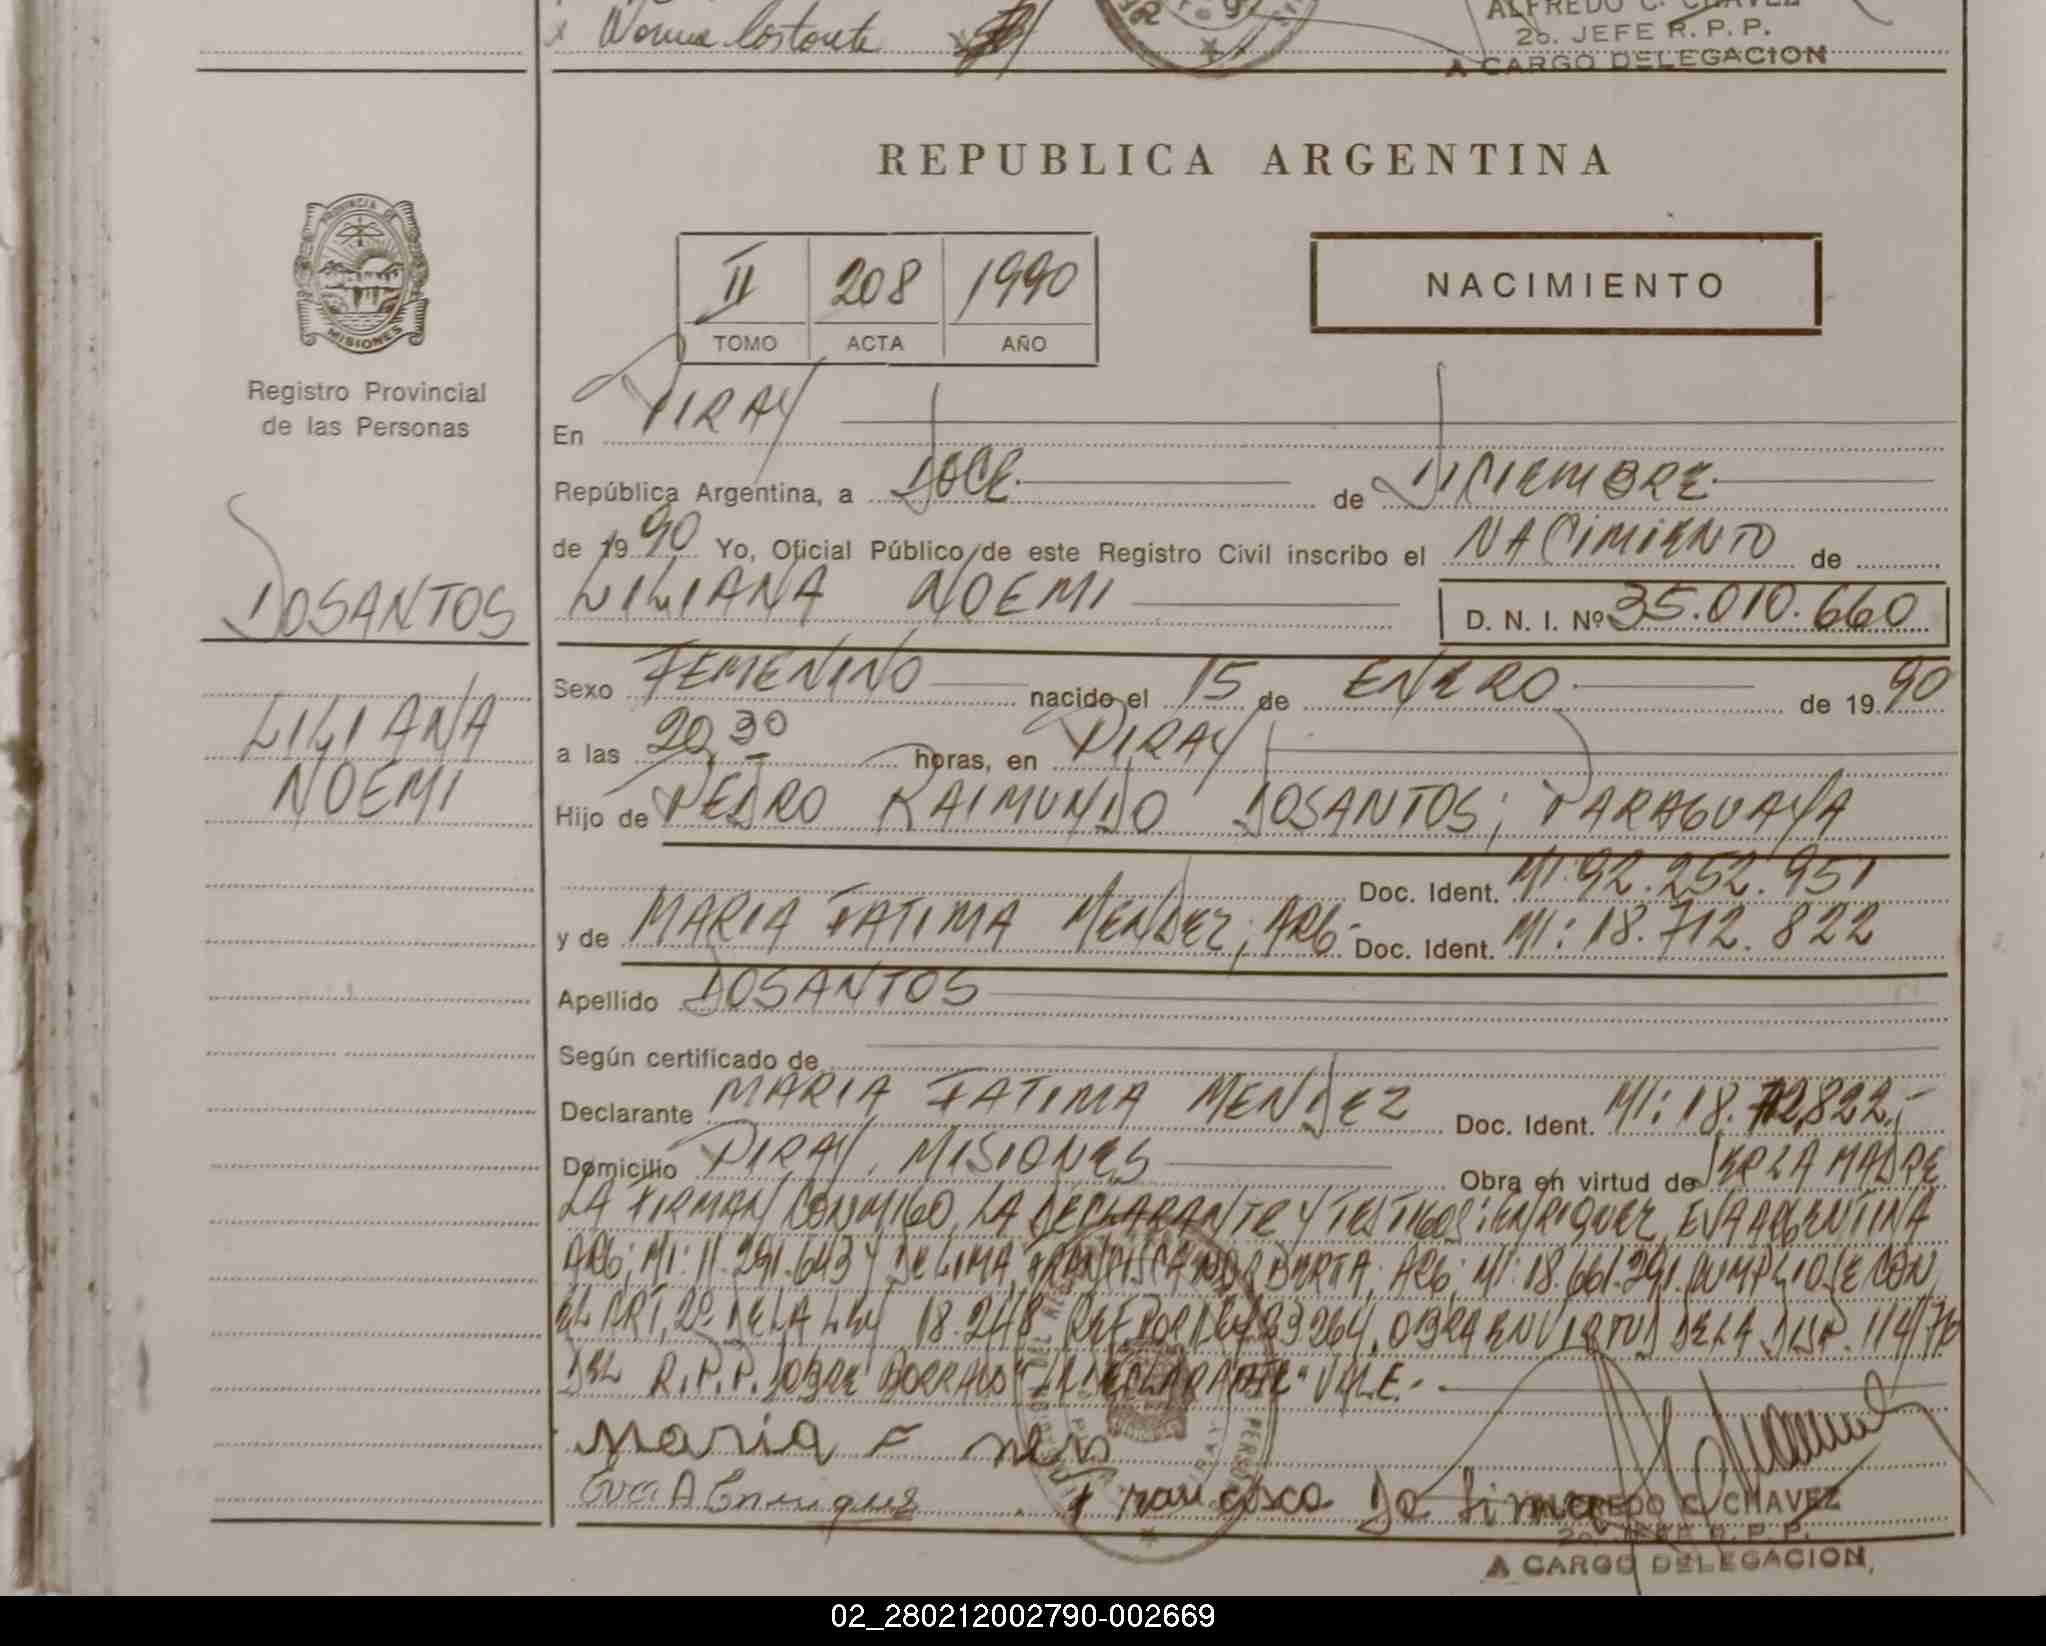 Norma
ALFREDO C. CHAVEZ
2o. JEFE R. P. P.
A CARGO DELEGACION
REPUBLICA ARGENTINA
PROVINCIA DE
MISIONES
Registro Provincial
de las Personas
II 208 1990
TOMO ACTA AÑO
NACIMIENTO
En PIRAY
República Argentina, a DOCE de DICIEMBRE
de 1990 Yo, Oficial Público de este Registro Civil inscribo el NACIMIENTO de
DOSANTOS
LILIANA NOEMI D. N. I. Nº 35.010.660
LILIANA
NOEMI
Sexo FEMENINO nacido el 15 de ENERO de 1990
a las 20,30 horas, en PIRAY
Hijo de PEDRO RAIMUNDO DOSANTOS; PARAGUAYA
Doc. Ident. MI: 92.252.951
y de MARIA FATIMA MENDEZ; ARG- Doc. Ident. MI: 18.712.822
Apellido DOSANTOS
Según certificado de
Declarante MARIA FATIMA MENDEZ Doc. Ident. MI: 18.712,822.-
Domicilio PIRAY. MISIONES Obra en virtud de SER LA MADRE
LA FIRMAN CONMIGO, LA DECLARANTE Y TESTIGOS: ENRIQUEZ, EVA ARGENTINA
ARG; MI: 11.291.643 Y DE LIMA, FRANCISCA NORBERTA; ARG; MI: 18.661.291. CUMPLIOSE CON
EL ART, 2º DE LA LEY 18.248 REF. POR LEY 23264, OBRA EN VIRTUD DE LA DISP. 114/76
DEL R.P.P. SOBRE BORRADO "LA DECLARANTE" VALE.-
Maria F
Eva A Enriquez Francisca De Lima
ALFREDO C. CHAVEZ
2o. JEFE R. P. P.
A CARGO DELEGACION,
02_280212002790-002669